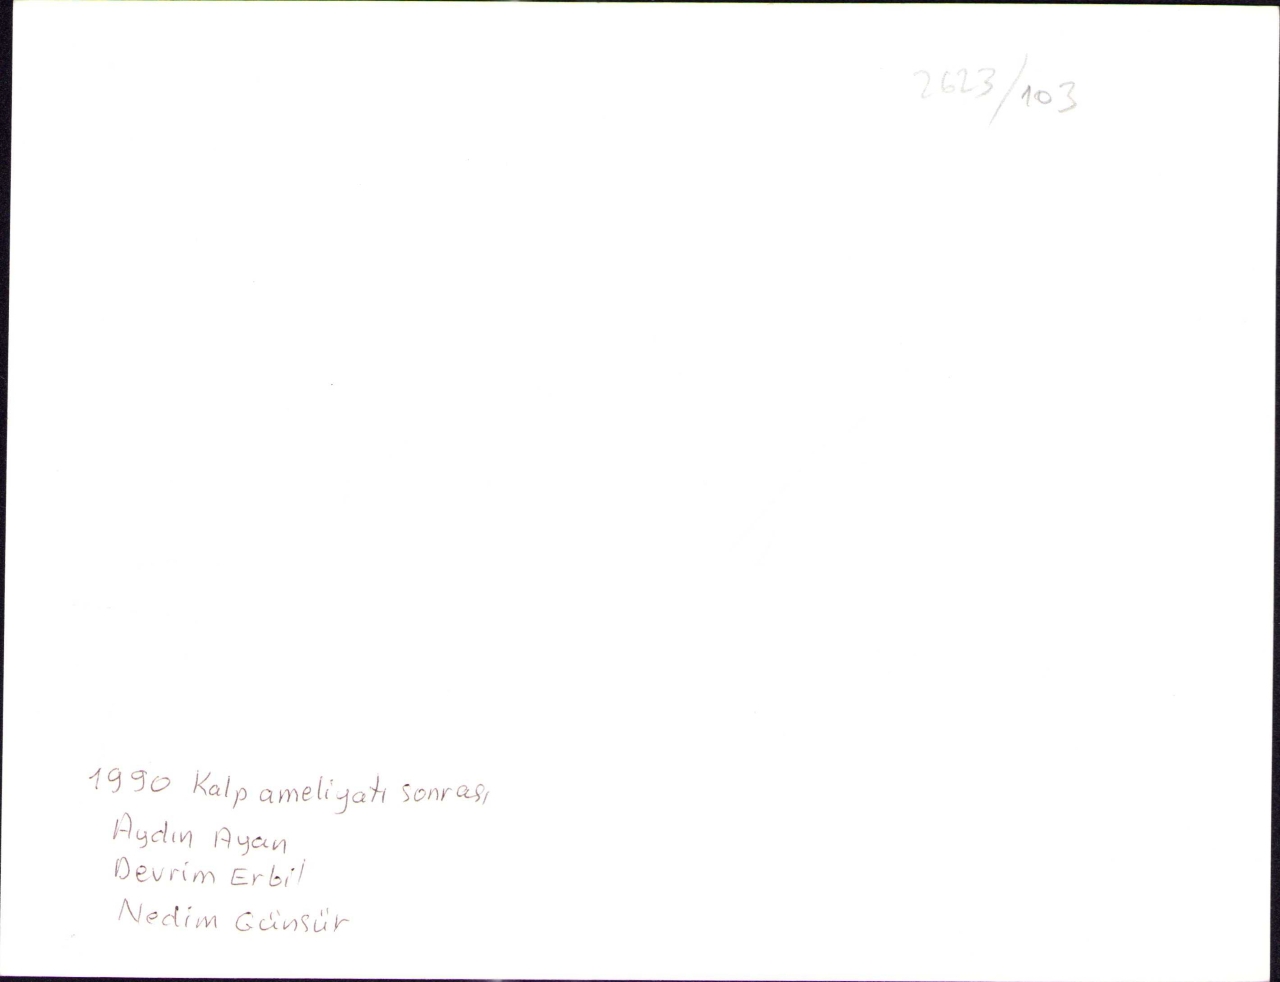 2623/103
1990 Kalp ameliyatı sonrası
Aydın Ayan
Devrim Erbil
Nedim Günsür